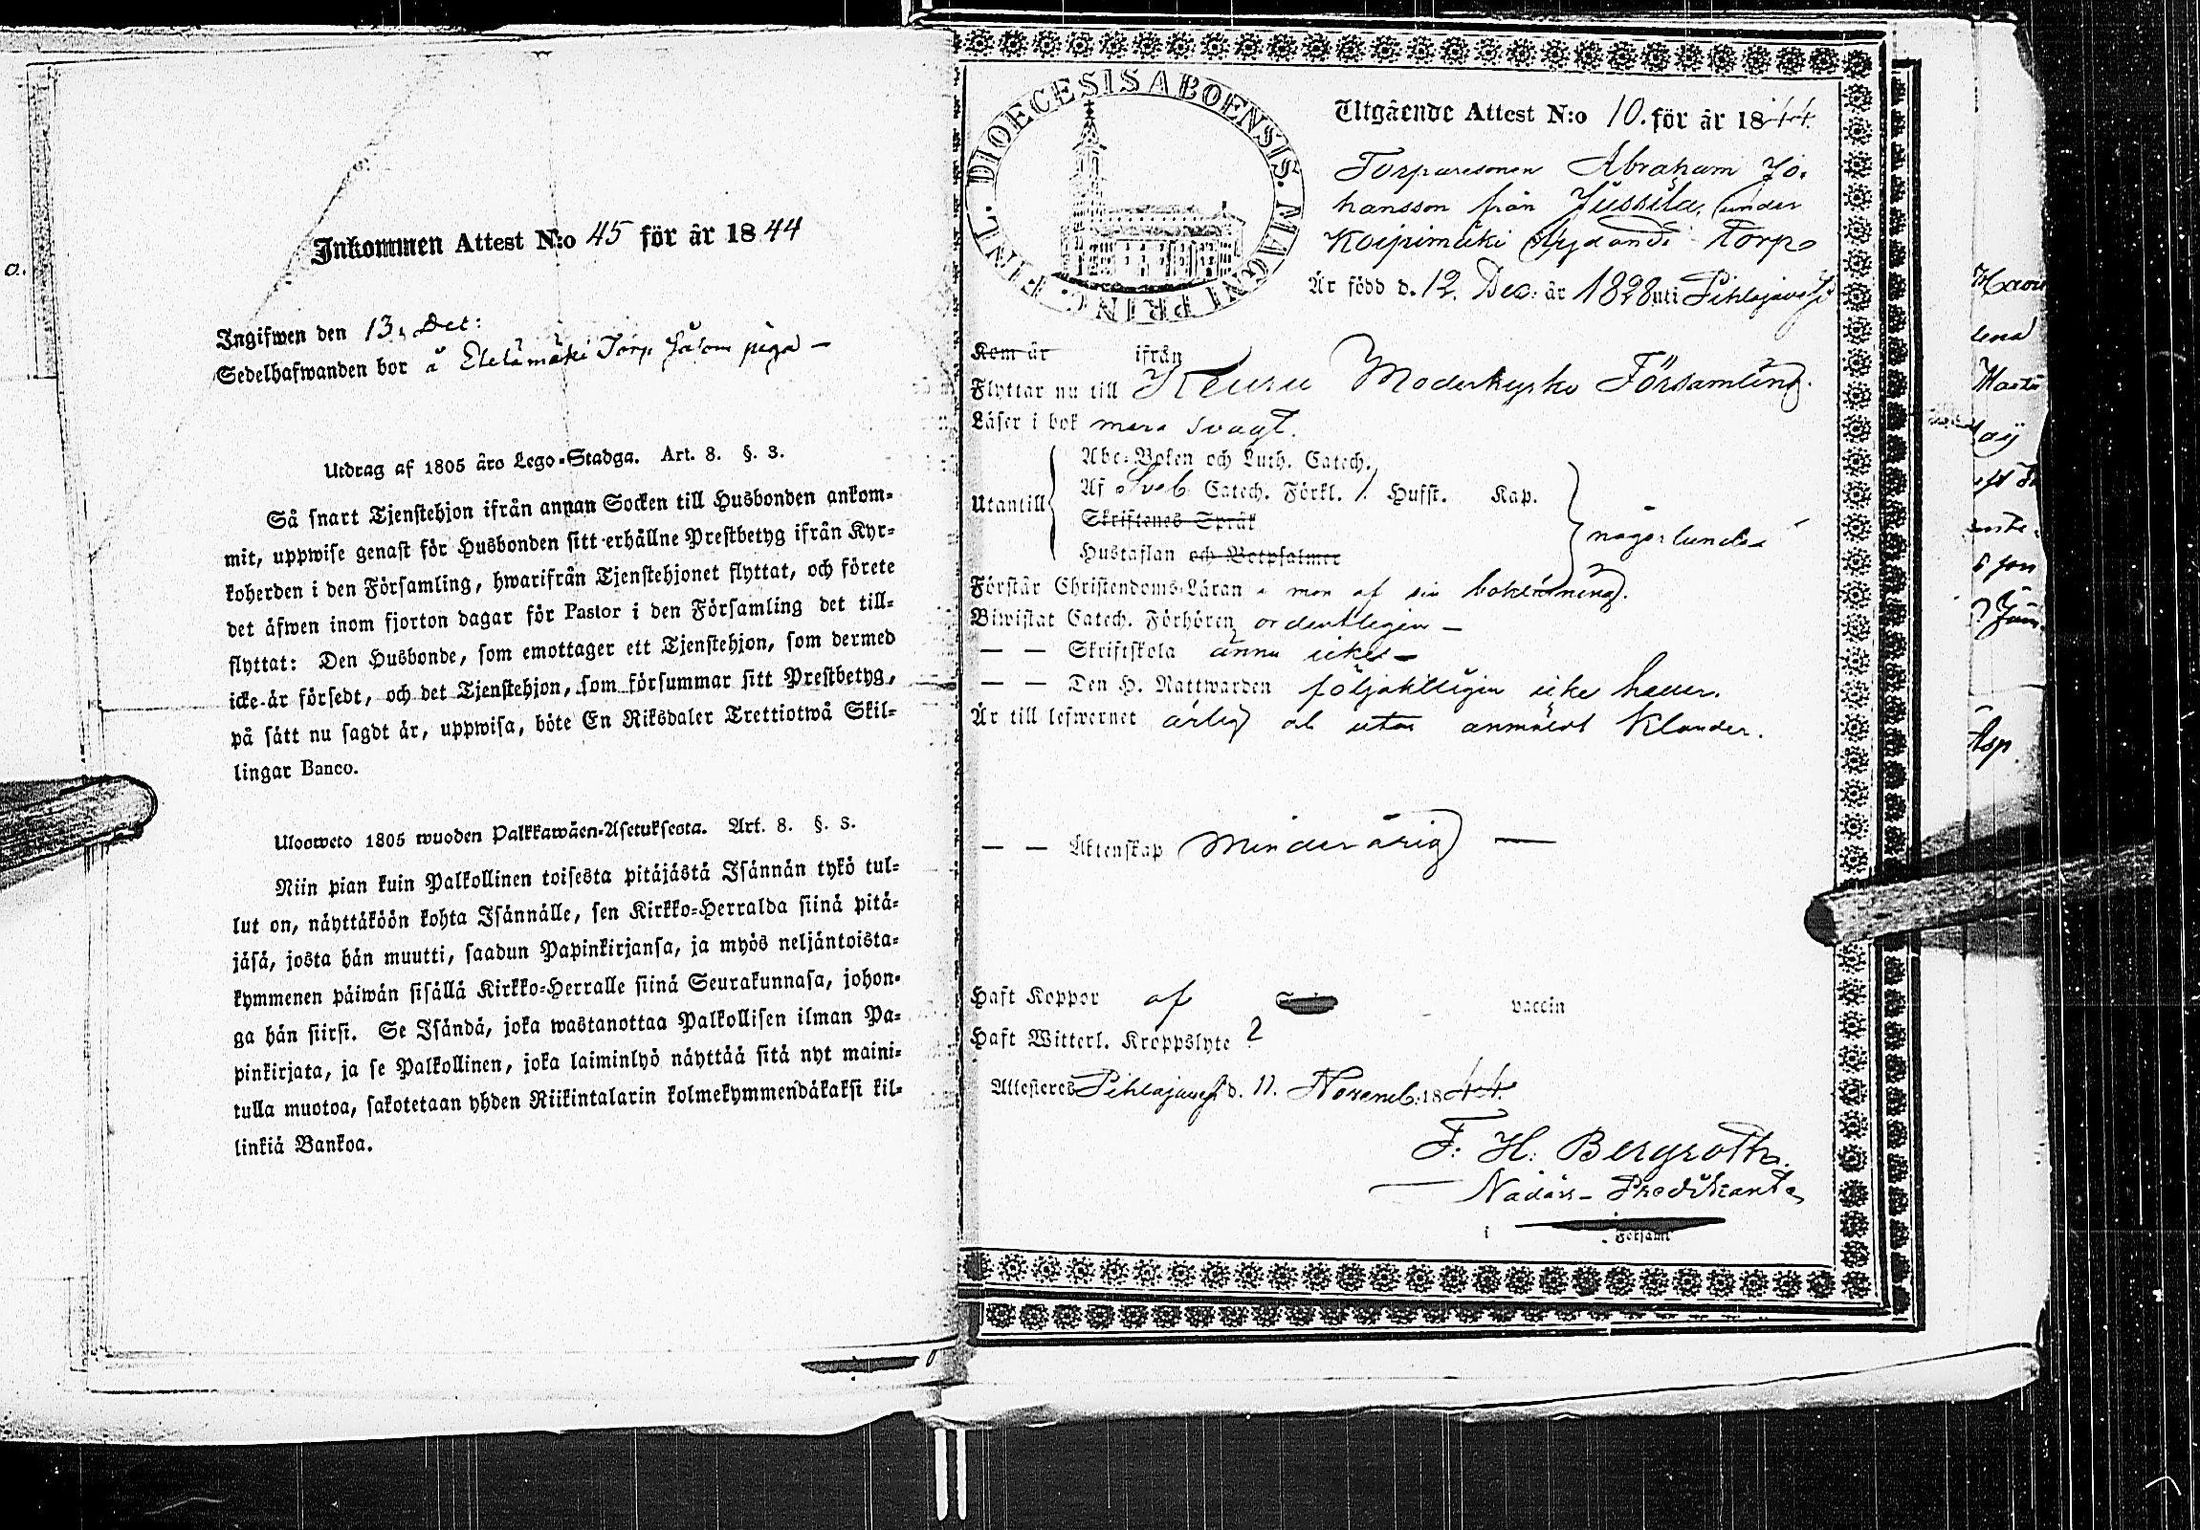 Inkommen Attest N:o 45 för år 1844
Ingifwen den 13. Det:
Sedelhafwanden bor å Etelämäki Torp såsom piga –
Utdrag af 1805 års Lego-Stadga. Art. 8. §. 3.
Så snart Tjenstehjon ifrån annan Socken till Husbonden ankom-
mit, uppwise genast för Husbonden sitt erhållne Prestbetyg ifrån Kyr-
koherden i den Församling, hwarifrån Tjenstehjonet flyttat, och förete
det äfwen inom fjorton dagar för Pastor i den Församling det till-
flyttat: Den Husbonde, som emottager ett Tjenstehjon, som dermed
icke är försedt, och det Tjenstehjon, som försummar sitt Prestbetyg,
på sätt nu sagdt är, uppwisa, böte En Riksdaler Trettiotwå Skil-
lingar Banco.
Ulosweto 1805 wuoden Palkkawäen-Asetuksesta. Art. 8. §. 3.
Niin pian kuin Palkollinen toisesta pitäjästä Isännän tykö tul-
lut on, näyttäköön kohta Isännälle, sen Kirkko-Herralda siinä pitä-
jäsä, josta hän muutti, saadun Papinkirjansa, ja myös neljäntoista-
kymmenen päiwän sisällä Kirkko-Herralle siinä Seurakunnasa, johon-
ga hän siirsi. Se Isändä, joka wastanottaa Palkollisen ilman Pa-
pinkirjata, ja se Palkollinen, joka laiminlyö näyttää sitä nyt maini-
tulla muotoa, sakotetaan yhden Riikintalarin kolmekymmendäkaksi kil-
linkiä Bankoa.
FINL. DIOECESIS ABOENSIS. MAGNI PRINC.
Utgående Attest N:o 10. för år 1844.
Torparesonen Abraham Jo-
hansson från Jussila, under
Koipimäki lydande Torp
Är född d. 12. Dec. år 1828 uti Pihlajavesi
Kom år ifrån
Flyttar nu till Keuru Moderkyrko Församling.
Läser i bok mera svagt.
Abc-Boken och Luth. Catech.
Af Sveb. Catech. Förkl. / Hufst. Kap.
Utantill
Skriftenes Språk
någorlunda
Hustaflan och Botpsalmer
Förstår Christendoms-Läran i mon af sin bokläsning.
Biwistat Catech. Förhören ordentligen –
— — Skriftskola ännu icke –
— — Den H. Nattwarden följaktligen icke heller.
Är till lefwernet ärlig och utan anmäldt klander.
— — Äktenskap Minderårig —
Haft Koppor af vaccin
Haft Witterl. Kroppslyte 2
Attesteres Pihlajavesi d. 11. Novemb. 1844.
F. H. Bergroth.
Nådårs-Predikant
i Församl